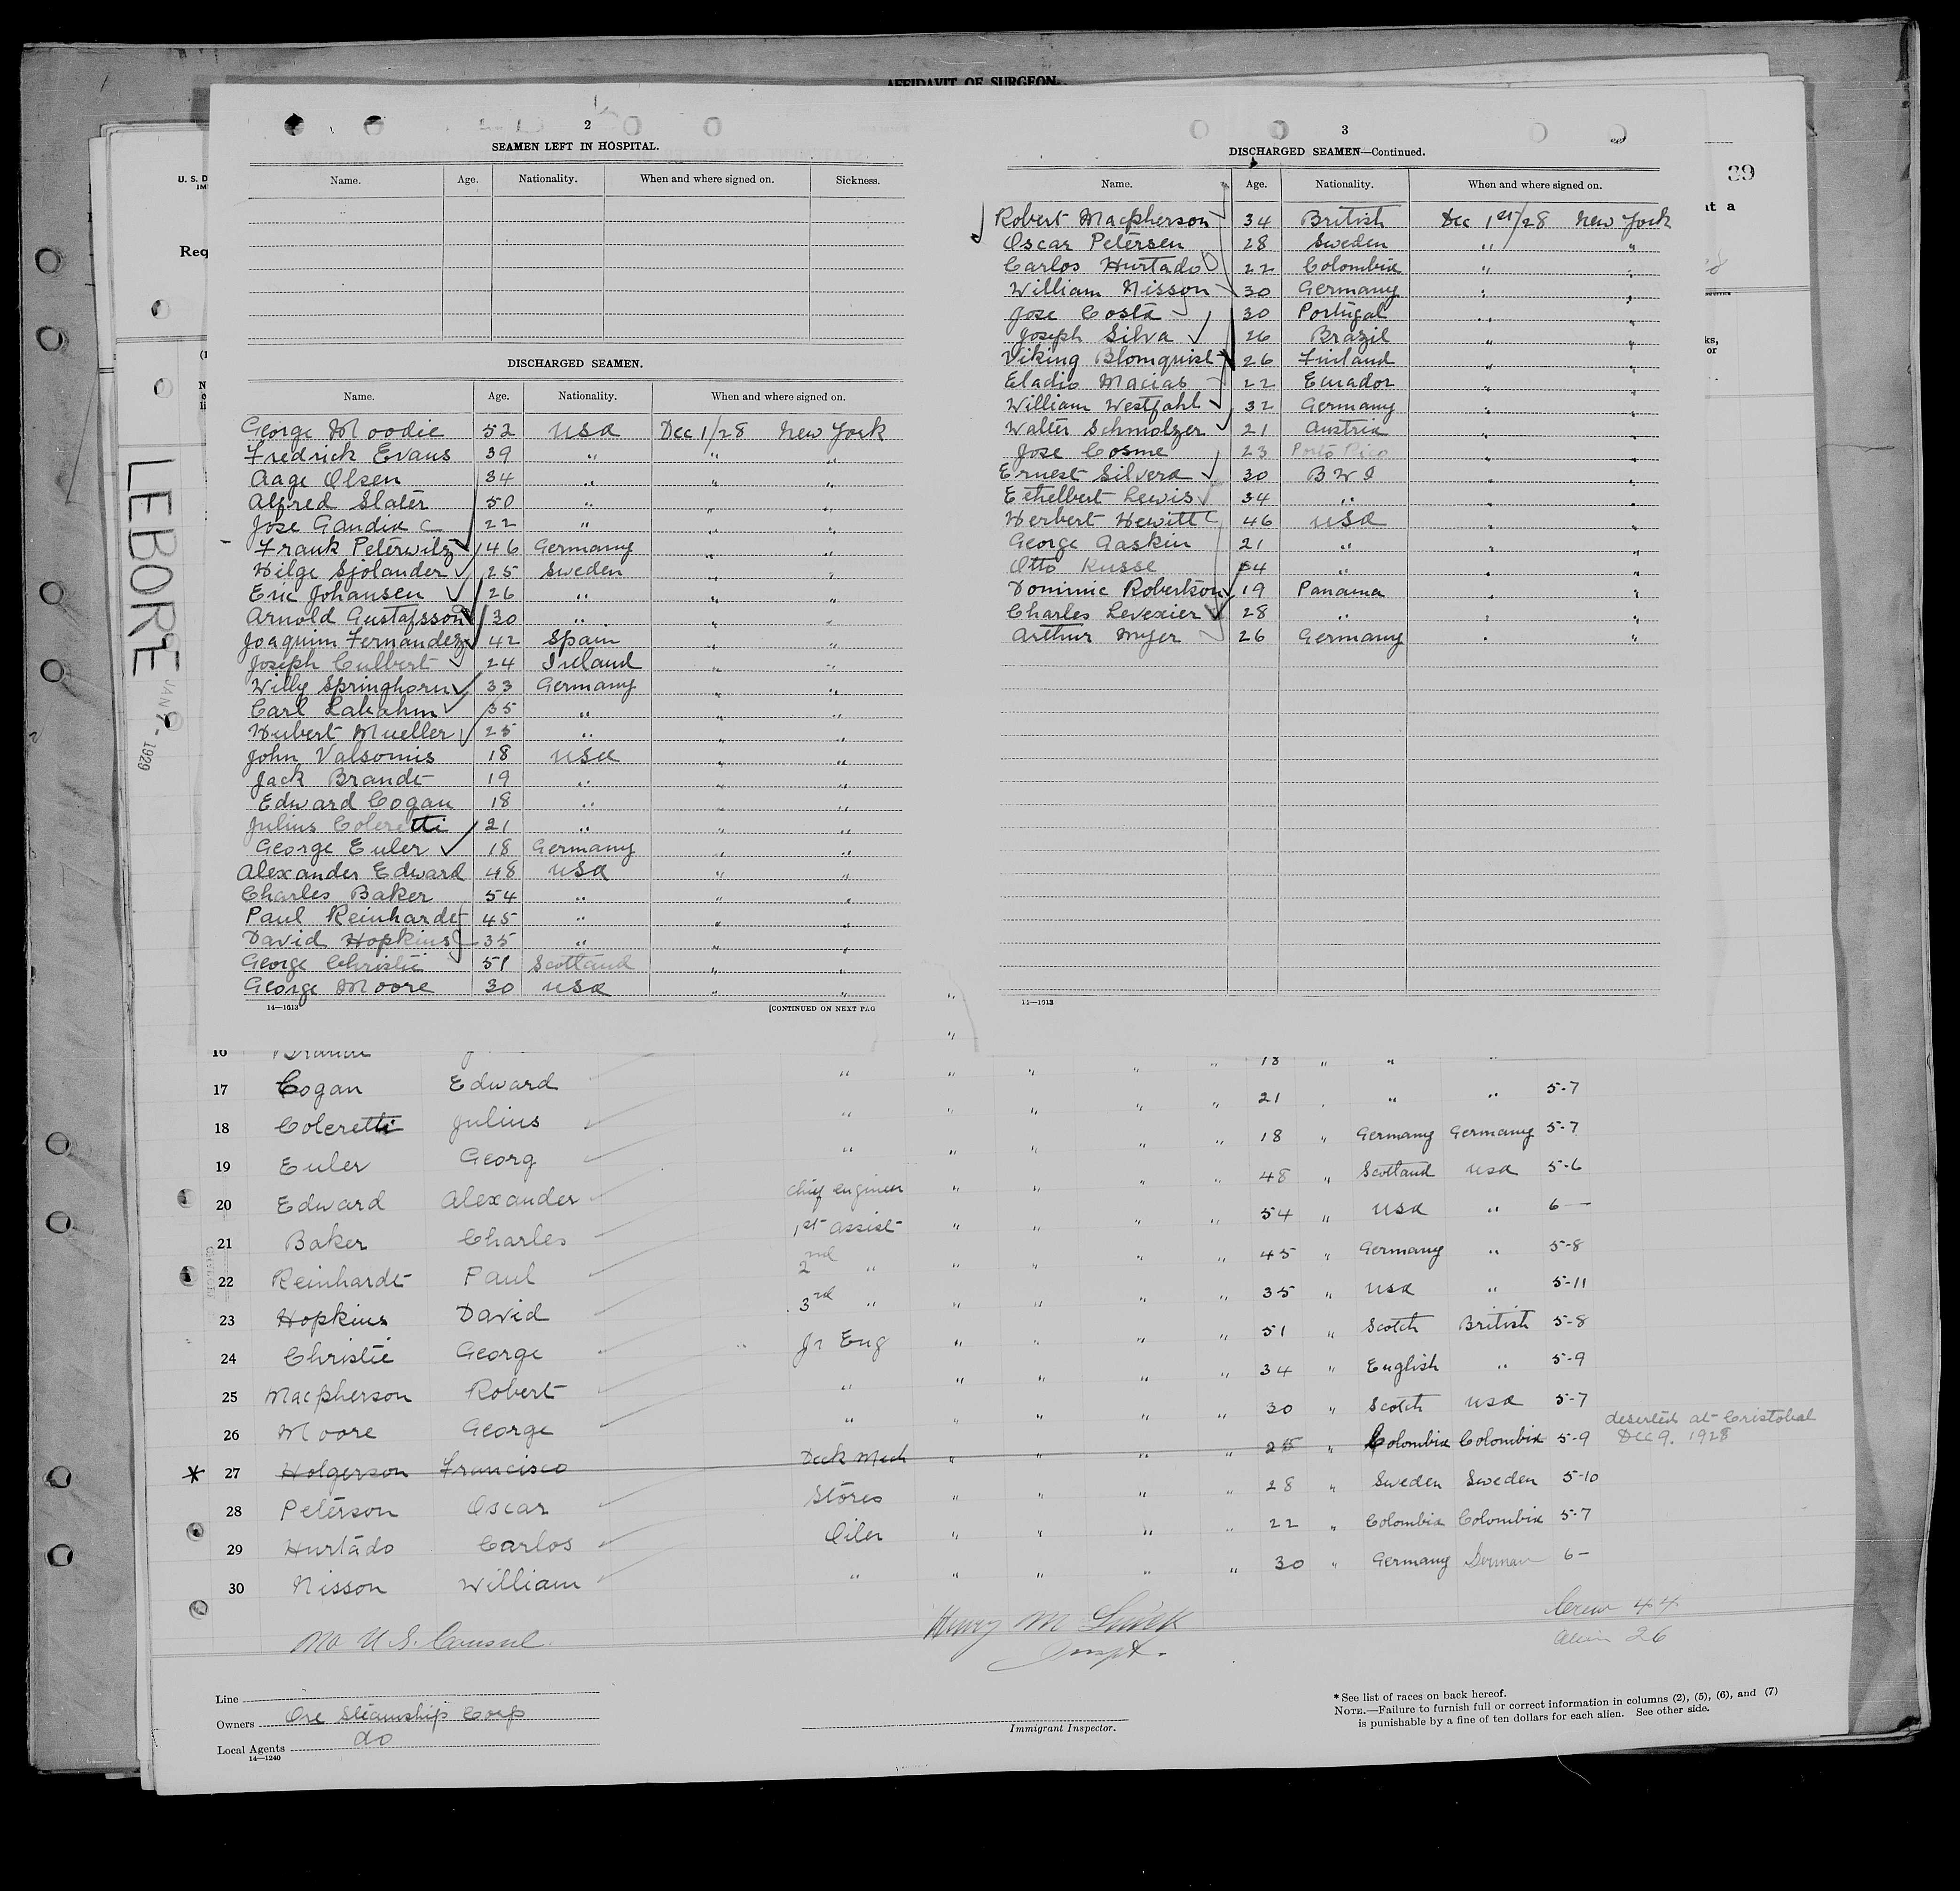 AFFIDAVIT OF SURGEON
2
SEAMEN LEFT IN HOSPITAL.
Name. Age. Nationality. When and where signed on. Sickness.
DISCHARGED SEAMEN.
Name. Age. Nationality. When and where signed on.
George Moodie 52 USA Dec 1/28 New York
Fredrick Evans 39 " " "
Aage Olsen 34 " " "
Alfred Slater 50 " " "
Jose Gandia C 22 " " "
Frank Peterwitz 46 Germany " "
Hilge Sjolander 25 Sweden " "
Eric Johansen 26 " " "
Arnold Gustafsson 30 " " "
Joaquim Fernandez 42 Spain " "
Joseph Culbert 24 Ireland " "
Willy Springhorn 33 Germany " "
Carl Lakahm 35 " " "
Hubert Mueller 25 " " "
John Valsomis 18 USA " "
Jack Brandt 19 " " "
Edward Cogan 18 " " "
Julius Coleretti 21 " " "
George Euler 18 Germany " "
Alexander Edward 48 USA " "
Charles Baker 54 " " "
Paul Reinhardt 45 " " "
David Hopkins 35 " " "
George Christie 51 Scotland " "
George Moore 30 USA " "
14—1613 [CONTINUED ON NEXT PAG
3
DISCHARGED SEAMEN—Continued.
Name. Age. Nationality. When and where signed on.
Robert Macpherson 34 British Dec 1st/28 New York
Oscar Petersen 28 Sweden " "
Carlos Hurtado 22 Colombia " "
William Nisson 30 Germany " "
Jose Costa 30 Portugal " "
Joseph Silva 26 Brazil " "
Viking Blomquist 26 Finland " "
Eladio Macias 22 Ecuador " "
William Westfahl 32 Germany " "
Walter Schmolzer 21 Austria " "
Jose Cosme 23 Porto Rico " "
Ernest Silvera 30 B W I " "
Ethelbert Lewis 34 " " "
Herbert Hewitt 46 USA " "
George Gaskin 21 " " "
Otto Kusse 54 " " "
Dominic Robertson 19 Panama " "
Charles Levexier 28 " " "
Arthur Myer 26 Germany " "
14—1613
39
U. S. D
IM
Req
LEBORE
JAN 9 - 1929
16 Brandt 18 " " "
17 Cogan Edward " " " " " 21 " " " 5-7
18 Coleretti Julius " " " " " 18 " Germany Germany 5-7
19 Euler Georg " " " " " 48 " Scotland USA 5-6
20 Edward Alexander Chief Engineer " " " " 54 " USA " 6—
21 Baker Charles 1st Assist " " " " 45 " Germany " 5-8
22 Reinhardt Paul 2nd " " " " " 35 " USA " 5-11
23 Hopkins David 3rd " " " " " 51 " Scotch British 5-8
24 Christie George Jr Eng " " " " 34 " English " 5-9
25 Macpherson Robert " " " " " 30 " Scotch USA 5-7
26 Moore George " " " " " 25 " Colombia Colombia 5-9 deserted at Cristobal Dec 9. 1928
* 27 Holgerson Francisco Deck Mech " " " " 28 " Sweden Sweden 5-10
28 Peterson Oscar Stores " " " " 22 " Colombia Colombia 5-7
29 Hurtado Carlos Oiler " " " " 30 " Germany German 6-
30 Nisson William " " " "
Crew 44
Alien 26
No U.S. Consul.
Henry M
Inspt.
Line
Owners Ore Steamship Corp
Local Agents do
14—1240
Immigrant Inspector.
* See list of races on back hereof.
NOTE.—Failure to furnish full or correct information in columns (2), (5), (6), and (7)
is punishable by a fine of ten dollars for each alien. See other side.